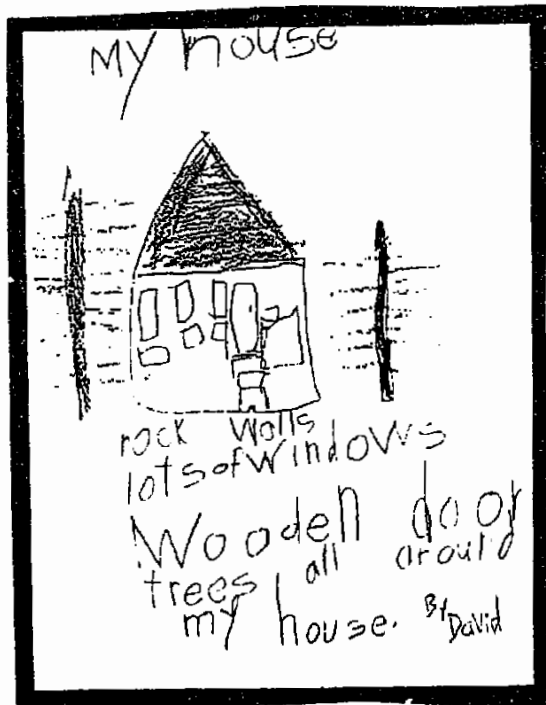 My house
rock walls
lots of windows
Wooden door
trees all around
my house. By David